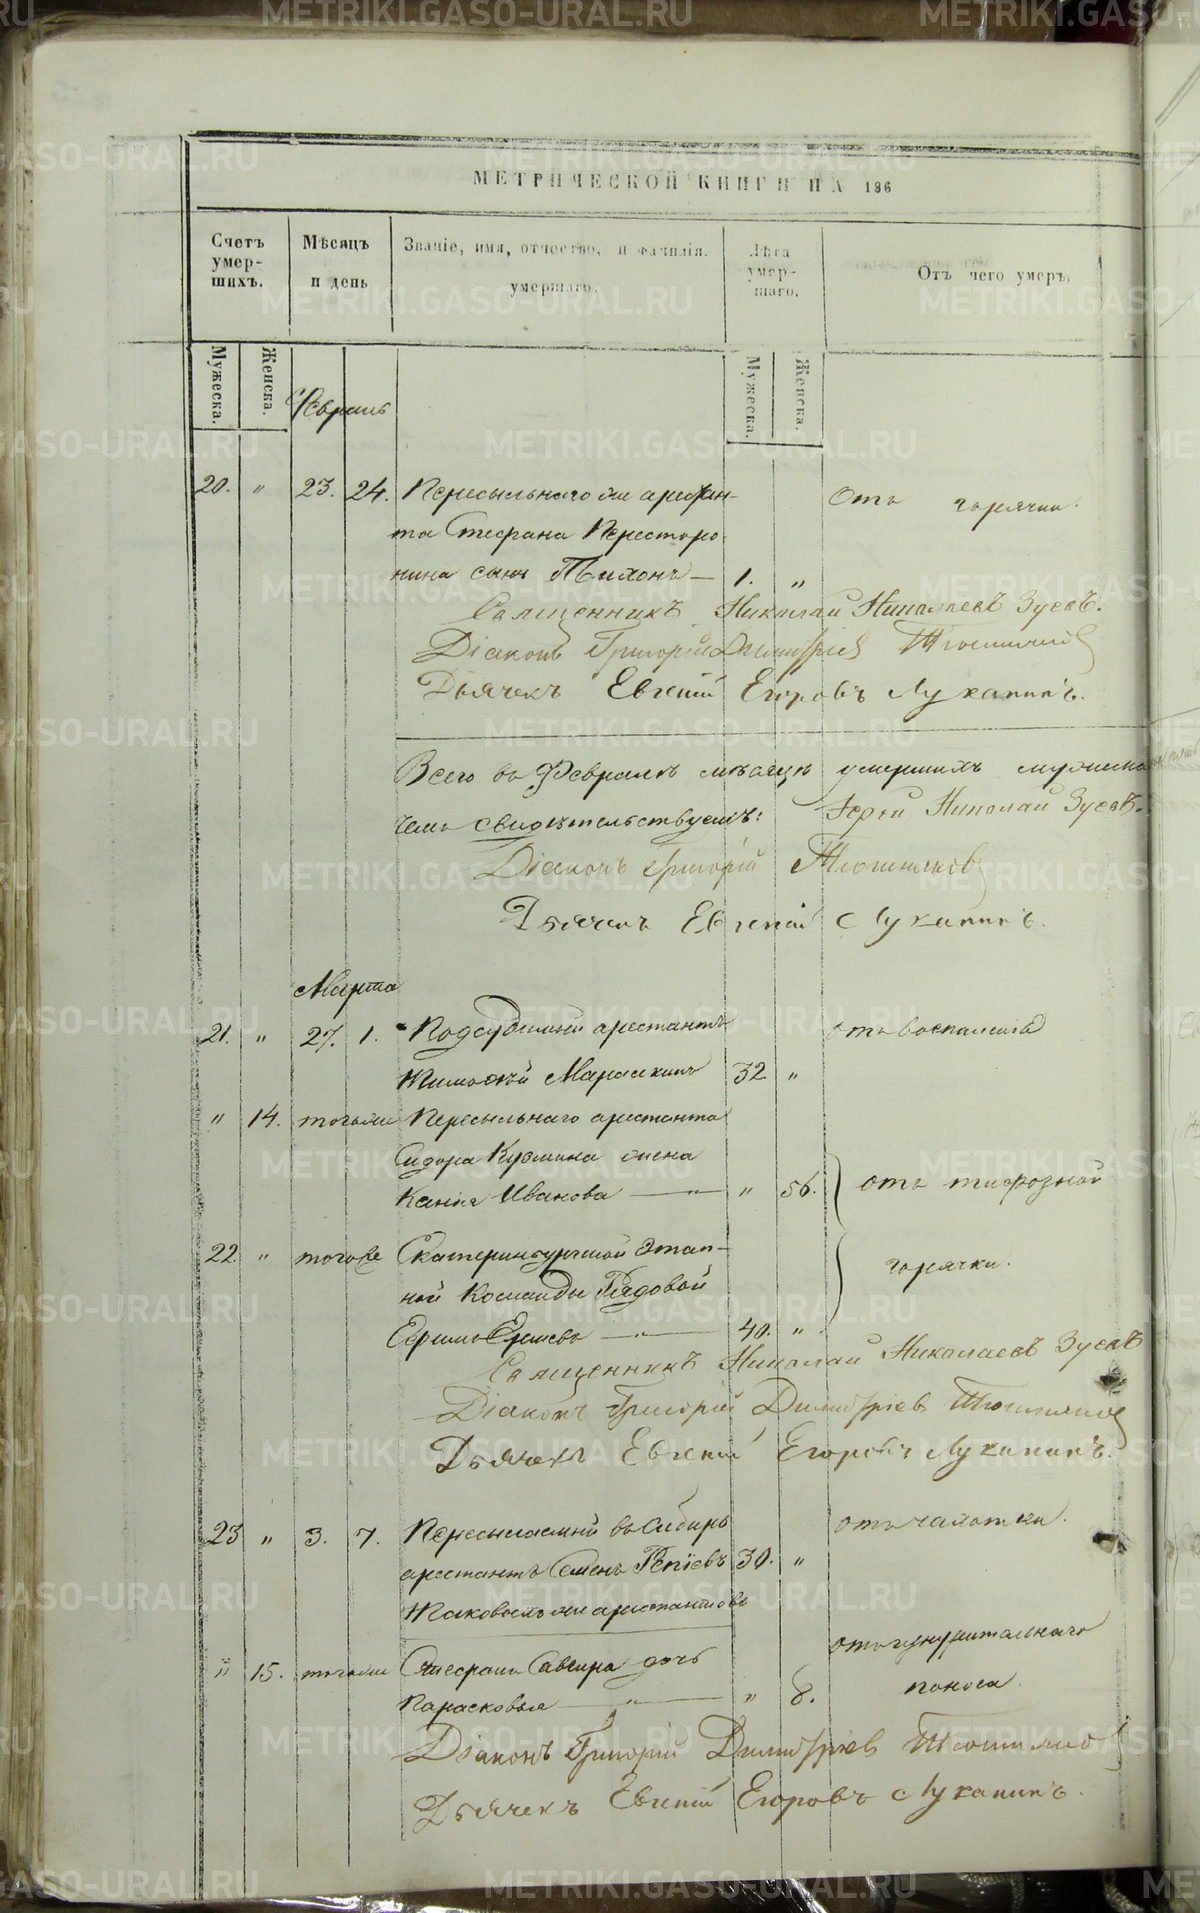 МЕТРИЧЕСКОЙ КНИГИ НА 186
Счетъ умер-шихъ.
Мѣсяцъ и день
Званіе, имя, отчество, и фамилія умершаго.
Лѣта умер-шаго.
Отъ чего умеръ.
Мужеска. Женска. Мужеска. Женска.
Февраль
20. " 23. 24. Пересыльнаго же арестан- Отъ горячки.
та Стефана Пересторо
нина сынъ Тихонъ — 1. "
Священникъ Николай Николаевъ Зуевъ.
Діаконъ Григорій Димитріев
Дьячекъ Евгеній Егоровъ Луканинъ.
Всего въ Февралѣ мѣсяцѣ умершихъ мужеска
чемъ свидѣтельствуемъ: Іерей Николай Зуевъ.
Діаконъ Григорій
Дьячекъ Евгеній Луканинъ.
Марта
21. " 27. 1. Подсудимый арестантъ отъ воспаленія
Тимофѣй 32 "
" 14. тогоже Пересыльнаго арестанта
Сидора Кузмина жена
Иванова — " 56. отъ тифозной
22. " тогоже Екатеринбургской этап-
ной Команды Рядовой горячки.
Ефимъ Ершевъ — 40. "
Священникъ Николай Николаевъ Зуевъ
Діаконъ Григорій Димитріев
Дьячекъ Евгеній Егоровъ Луканинъ.
23 " 3. 7. Пересылаемый въ Сибирь отъ чахотки.
арестантъ Семенъ 30. "
Таковыхъ же арестантовъ
" 15. тогоже дочь отъ изнурительнаго
Парасковья — " 8. поноса.
Діаконъ Григорій Димитріев
Дьячекъ Евгеній Егоровъ Луканинъ.
METRIKI.GASO-URAL.RU